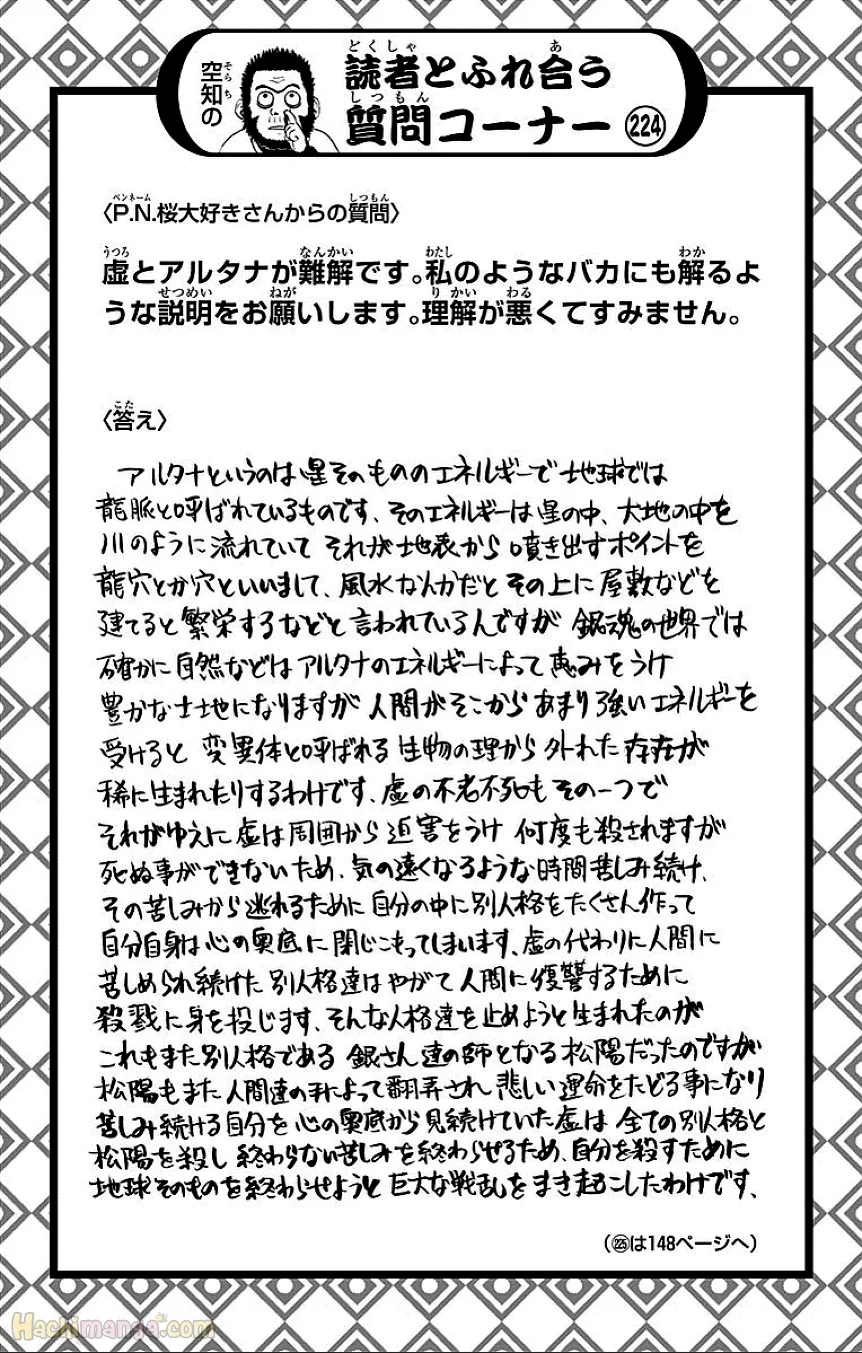 空知の
読者とふれ合う
質問コーナー 224
〈P.N.桜大好きさんからの質問〉
虚とアルタナが難解です。私のようなバカにも解るよ
うな説明をお願いします。理解が悪くてすみません。
〈答え〉
アルタナというのは星そのもののエネルギーで地球では
龍脈と呼ばれているものです、そのエネルギーは星の中、大地の中を
川のように流れていて それが地表から噴き出すポイントを
龍穴とか穴といいまして、風水なんかだとその上に屋敷などを
建てると繁栄するなどと言われているんですが 銀魂の世界では
確かに自然などはアルタナのエネルギーによって恵みをうけ
豊かな土地になりますが人間がそこからあまり強いエネルギーを
受けると 変異体と呼ばれる生物の理から外れた存在が
稀に生まれたりするわけです、虚の不老不死もその一つで
それがゆえに虚は周囲から迫害をうけ 何度も殺されますが
死ぬ事ができないため、気の遠くなるような時間苦しみ続け、
その苦しみから逃れるために自分の中に別人格をたくさん作って
自分自身は心の奥底に閉じこもってしまいます、虚の代わりに人間に
苦しめられ続けた別人格達はやがて人間に復讐するために
殺戮に身を投じます、そんな人格達を止めようと生まれたのが
これもまた別人格である 銀さん達の師となる松陽だったのですが
松陽もまた人間達の手によって翻弄され 悲しい運命をたどる事になり
苦しみ続ける自分を心の奥底から見続けていた虚は 全ての別人格と
松陽を殺し 終わらない苦しみを終わらせるため、自分を殺すために
地球そのものを終わらせようと巨大な戦乱をまき起こしたわけです、
（225は148ページへ）
Hachimanga.com